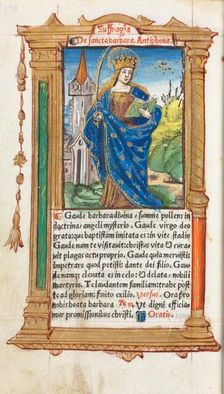 Suffragia
De sancta barbara. Antiphona.
Gaude barbara diuina / summe pollens in
doctrina: angeli mysterio. Gaude virgo deo
grata: que baptistam imitata es: in vite stadio
Gaude nam te visitauit: christus vita
plagas actu proprio. Gaude quia meruisti:
impetrare quod petisti: dante dei filio. Gau
de namque eleuata es in celo: O delata: nobili
martyrio. Te laudantem familiam: trahe post
te ad gloriam: finito exilio. Versus. Ora pro
nobis beata barbara Ut digni efficia
mur promissionibus christi. Oratio.